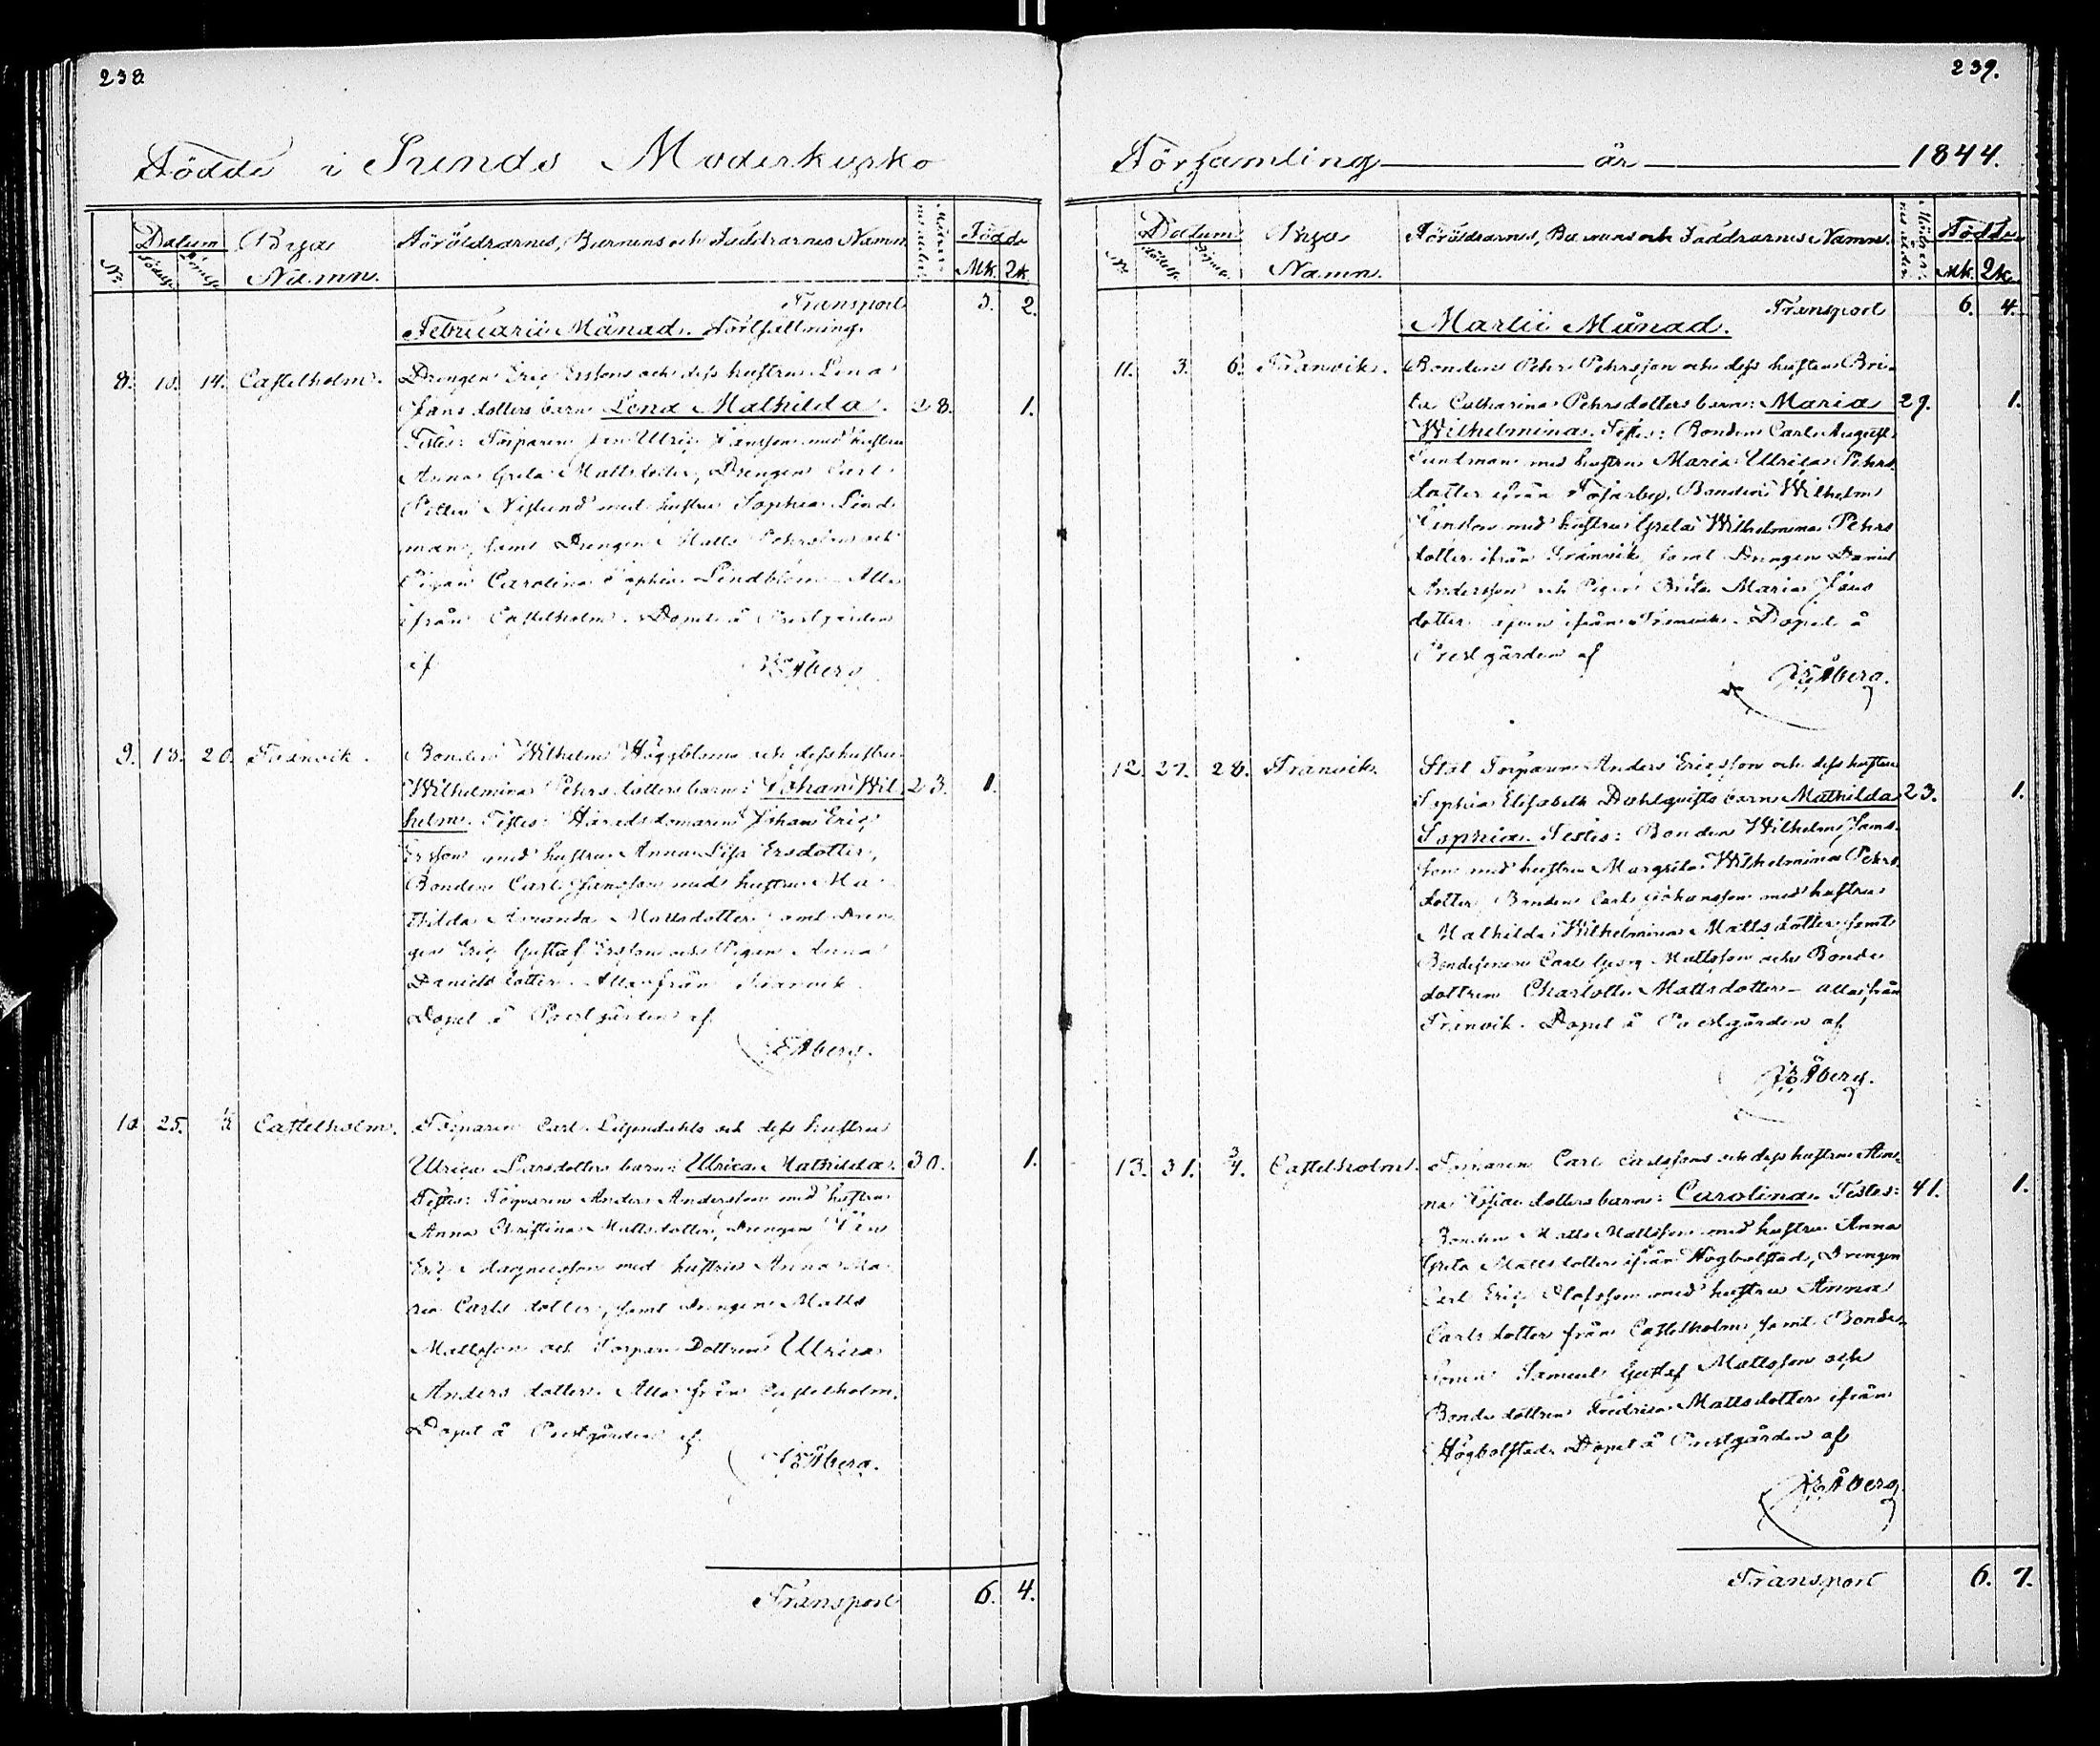 238
Födde i Sunds Moderkyrko
Datum
Byar
Föräldrarnes, Barnens och Faddrarnes Namn
Födde
No
Namn.
Mk. Qk.
Transport 5. 2.
Februarii Månad. Fortsättning.
8. 10. 14. Castelholm. Drengen Eric Erssons och dess hustru Lena
Jansdotters barn: Lena Mathilda. 28. 1.
Testes: Torparen Jan Ulric Jansson med hustru
Anna Greta Mattsdotter, Drengen Carl
med hustru Sophia Lind-
man, samt Drengen Matts Pehrsson och
Pigan Carolina Sophia Lindblom. Alla
ifrån Castelholm. Döpet å Prestgården
af Åberg
9. 18. 20. Tranvik. Bonden Wilhelm Häggbloms och dess hustru
Wilhelmina Pehrsdotters barn: Johan Wil- 23. 1.
helm. Testes: Häradsdomaren Johan Eric
Ersson med hustru Anna Lisa Ersdotter,
Bonden Carl Jansson med hustru Ma-
thilda Amanda Mattsdotter, samt Dren-
gen Eric Gustaf Ersson och Pigan Anna
Danielsdotter. Alla ifrån Tranvik.
Döpet å Prestgården af
Åberg.
10. 25. Castelholm. Torparen Carl Liljendahls och dess hustru
Ulrica Larsdotters barn: Ulrica Mathilda. 30. 1.
Testes: Torparen Anders Andersson med hustru
Anna Christina Mattsdotter, Drengen
Eric Magnusson med hustru Anna Ma-
ria Carlsdotter, samt Drengen Matts
Mattsson och Torpare Dottren Ulrica
Andersdotter. Alla ifrån Castelholm.
Döpet å Prestgården af
Åberg.
Transport 6. 4.
239.
Församling år 1844.
Datum
Byar
Föräldrarnes, Barnens och Faddrarnes Namn.
Födde
No
Namn.
Mk. Qk.
Transport 6. 4.
Martii Månad.
11. 3. 6. Tranvik. Bonden Pehr Pehrsson och dess hustru Bri-
ta Catharina Pehrsdotters barn: Maria 29. 1.
Wilhelmina. Testes: Bonden Carl August
Sundman med hustru Maria Ulrica Pehrs-
dotter ifrån Tosarby, Bonden Wilhelm
Jansson med hustru Greta Wilhelmina Pehrs-
dotter ifrån Tranvik, samt Drengen Daniel
Andersson och Pigan Brita Maria Jans-
dotter även ifrån Tranvik. Döpet å
Prestgården af
Åberg.
12. 27. 28. Tranvik. Stat Torparen Anders Ericsson och dess hustru
Sophia Elisabeth Dahlquists barn: Mathilda 23. 1.
Sophia. Testes: Bonden Wilhelm Jans-
son med hustru Margreta Wilhelmina Pehrs-
dotter, Bonden Carl Johansson med hustru
Mathilda Wilhelmina Mattsdotter, samt
Bondesonen Carl Georg Mattsson och Bonde-
dottren Charlotta Mattsdotter – alla ifrån
Tranvik. Döpet å Prestgården af
Åberg.
13. 31. 3/4. Castelholm. Torparen Carl Carlssons och dess hustru An-
na Esaiædotters barn: Carolina. Testes: 41. 1.
Bonden Matts Mattsson med hustru Anna
Greta Mattsdotter ifrån Högbolstad, Drengen
Carl Eric Olofsson med hustru Anna
Carlsdotter från Castelholm, samt Bonde-
sonen Samuel Gustaf Mattsson och
Bondedottren Fredrica Mattsdotter ifrån
Högbolstad. Döpet å Prestgården af
Åberg
Transport 6. 7.